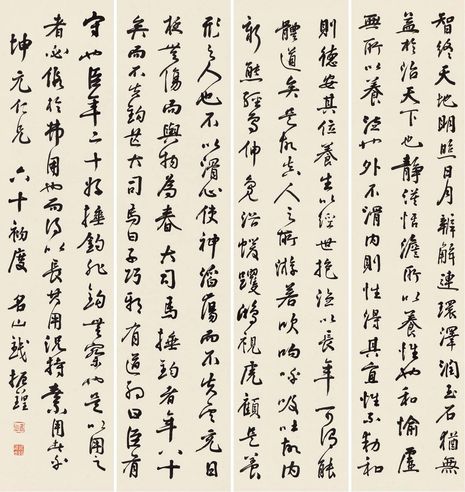 智終天地明照日月辯解連環澤潤玉石猶無
益於治天下也靜漠恬澹所以養性也和愉虛
無所以養德也外不滑內則性得其宜性不動和
則德安其位養生以經世抱德以長年可謂能
體道矣是故真人之所游若吹呴呼吸吐故內
新熊經鳥伸鳧浴蝯躩鴟視虎顧是養
形之人也不以滑心使神滔蕩而不失其充日
夜無傷而與物為春 大司馬捶鉤者年八十
矣而不失鉤芒大司馬曰子巧邪有道邪曰臣有
守也臣年二十好捶鉤非鉤無察也是以用之
者必假於弗用也而得以長其用況持無用者乎
坤元仁兄 六十初度 名山錢振鍠